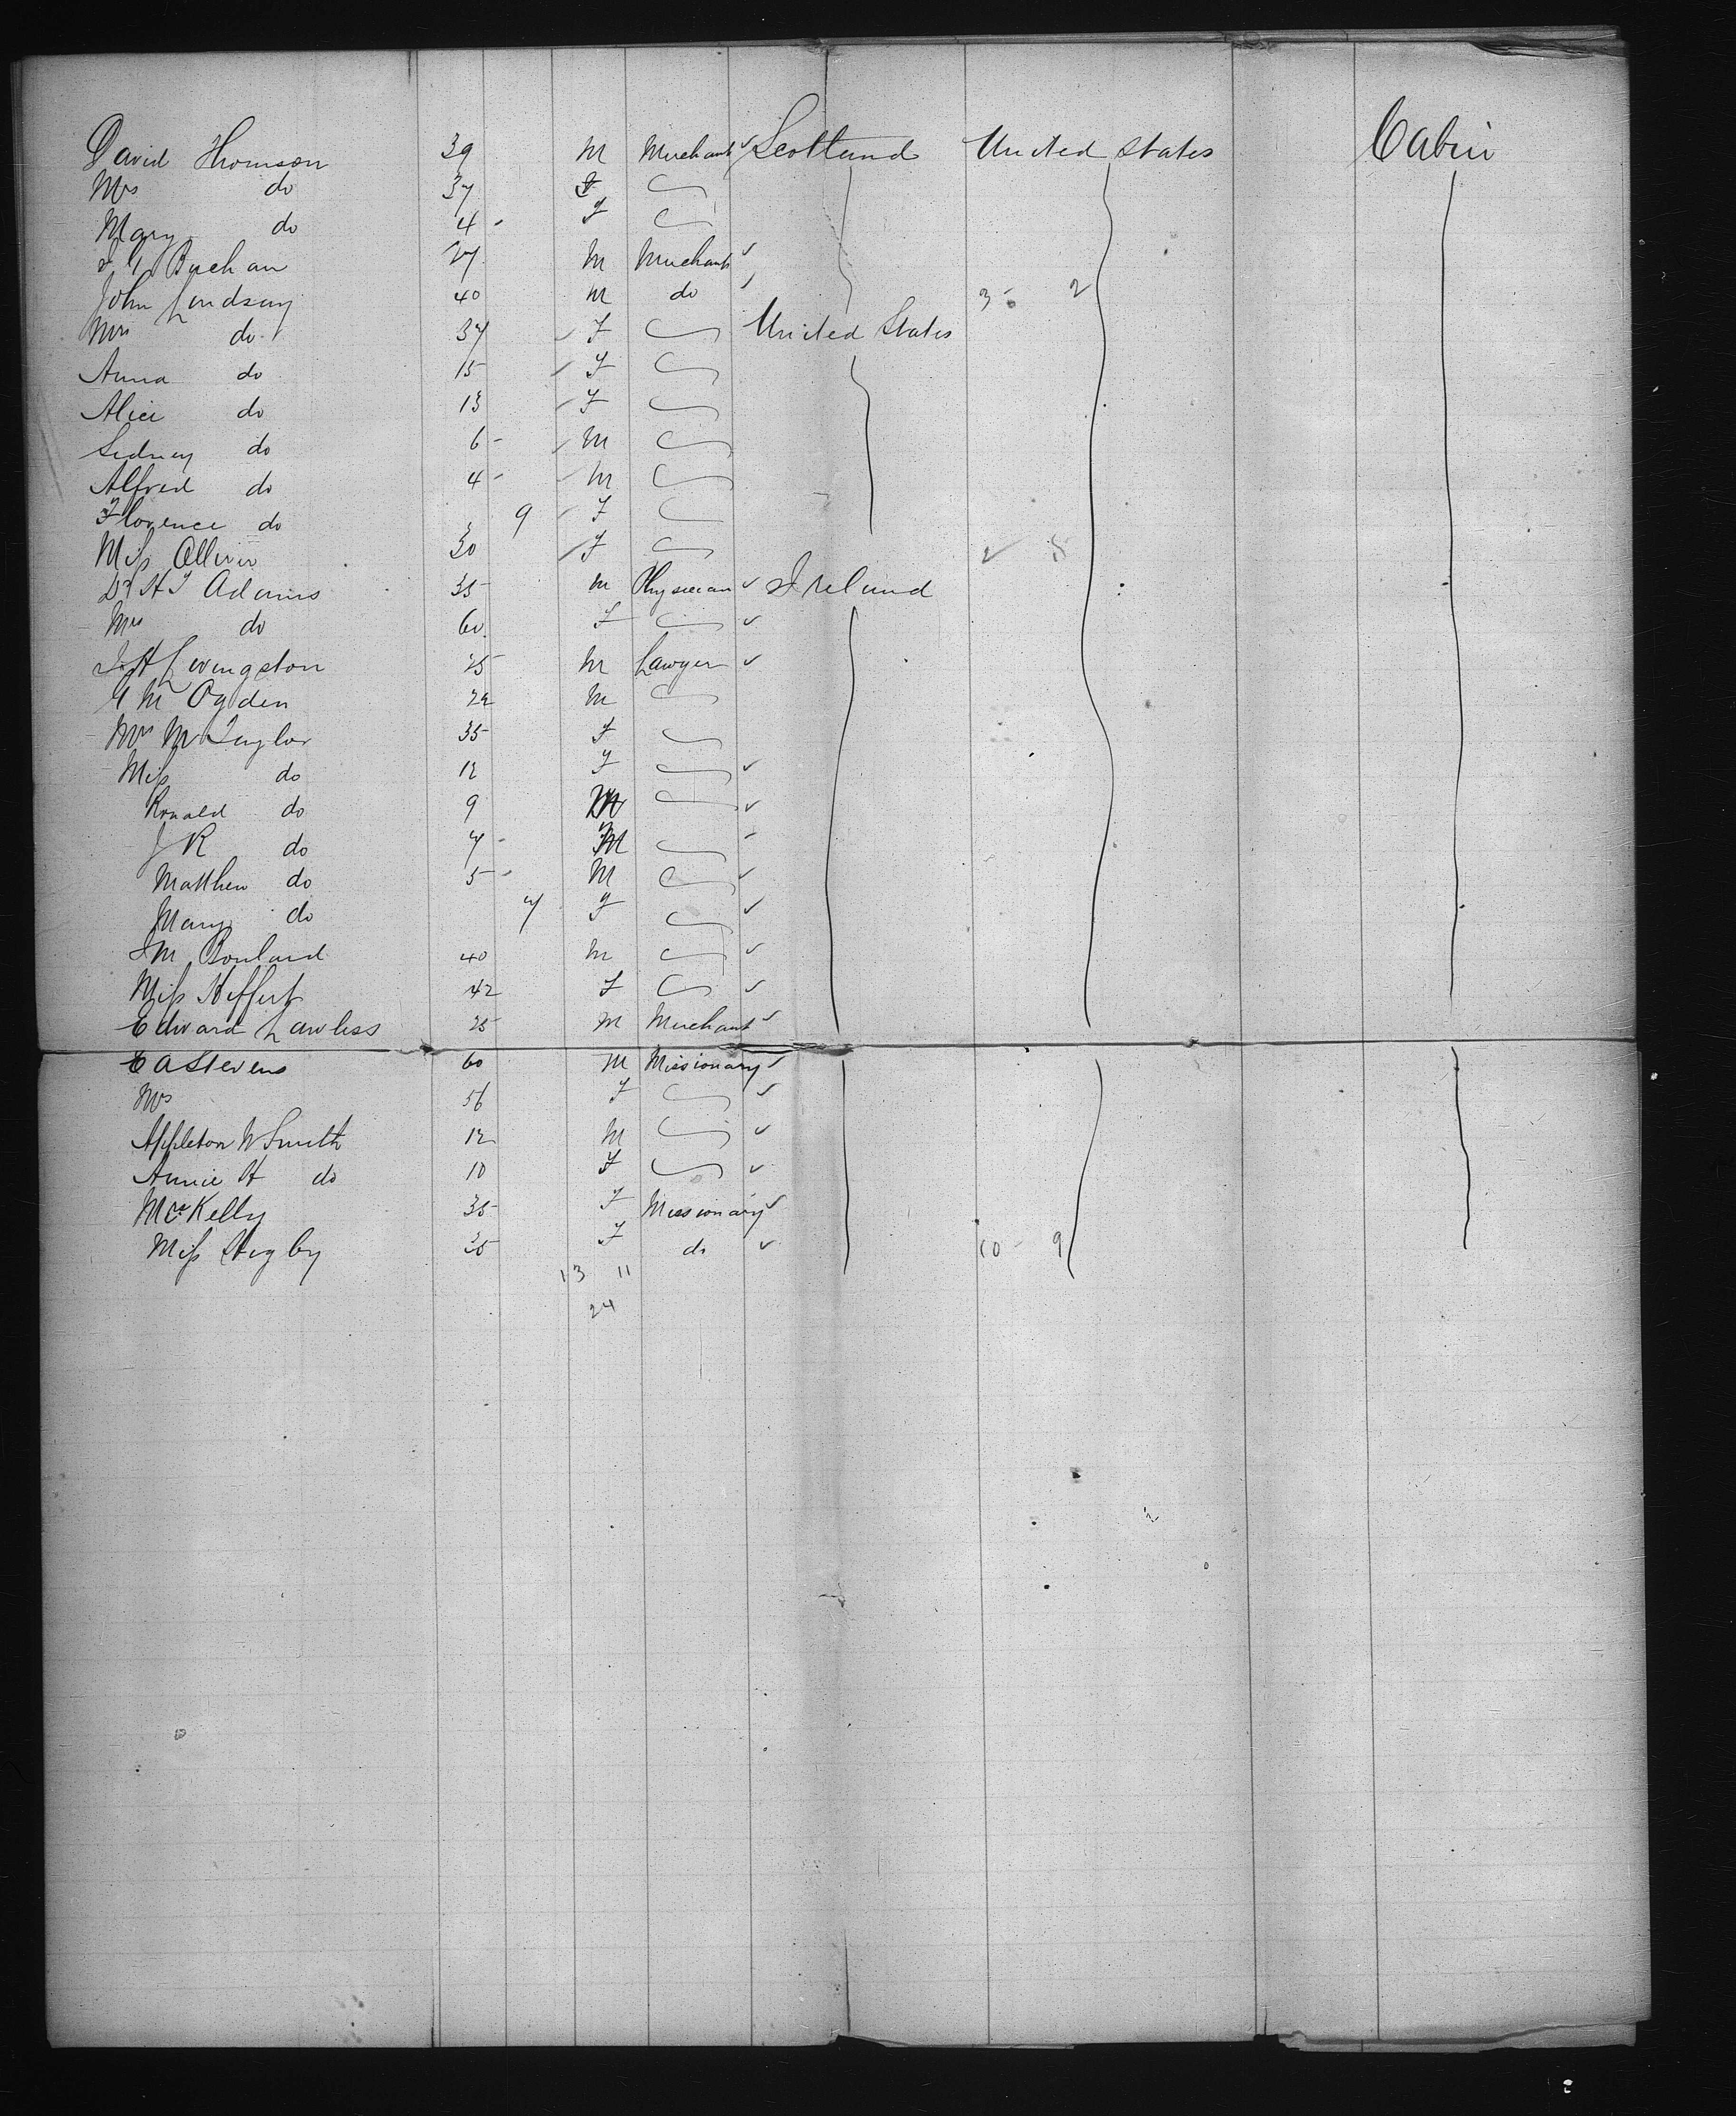 David Thomson 39 M Merchant ✓ Scotland United States Cabin
Mrs do 37 F
Mary do 4 - F
Buchan 27 M Merchant ✓
John Lindsay 40 M do ✓ 3 - 2
Mrs do 37 ✓ F United States
Anna do 15 ✓ F
Alice do 13 ✓ F
Sidney do 6 - ✓ M
Alfred do 4 - M
Florence do 9 ✓ F
Miss Ollivier 30 ✓ F 2 8
Dr H J Adams 35 M Physician ✓ Ireland
Mrs do 60 F ✓
Livingston 25 M Lawyer ✓
G M Ogden 22 M
Mrs M Taylor 35 F
Miss do 12 F ✓
Ronald do 9 M ✓
J R do 7 - M
Matthew do 5 - M ✓
Mary do 7 F ✓
M 40 M ✓
Miss 42 F ✓
Edward Lawless 25 M Merchant ✓
E A Stevens 60 M Missionary ✓
Mrs 56 F ✓
Appleton W Smith 12 M ✓
Annie H do 10 F ✓
Kelly 35 F Missionary ✓
Miss Higby 35 F do ✓ 10 - 9
13 11
24